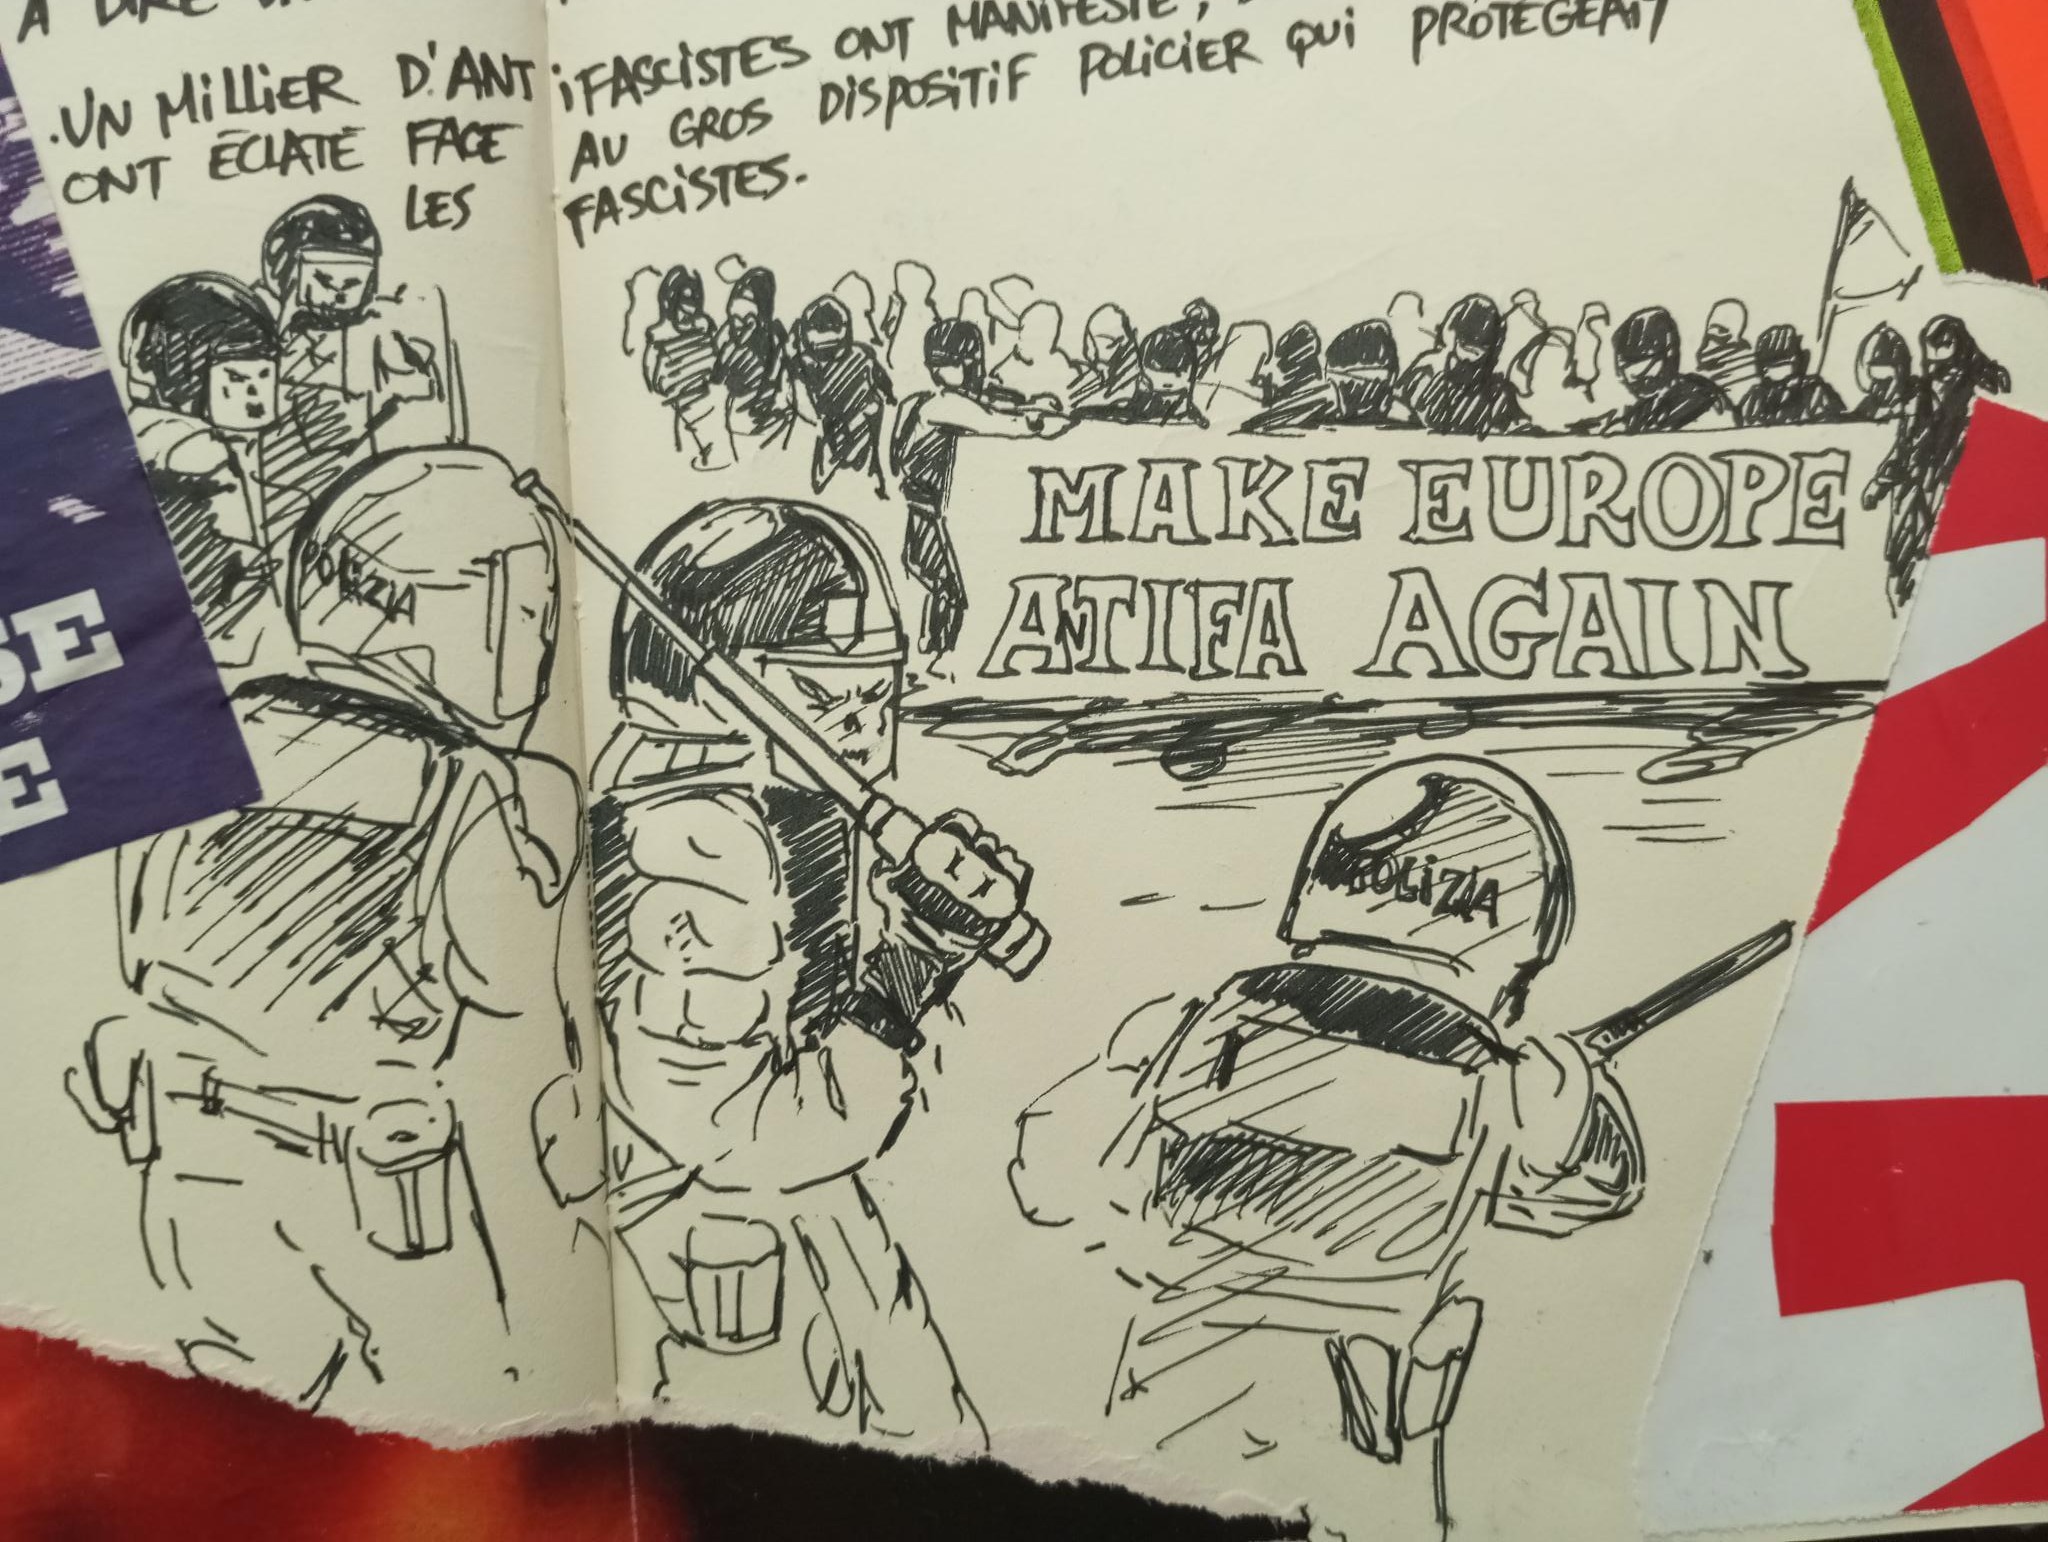 A DIRE
.UN MiLLiER D'ANTiFASCiSTES ONT MANiFESTÉ,
ONT ÉCLATÉ FACE AU GROS DiSPOSiTiF POLiCiER QUi PROTÉGEAiT
LES FASCiSTES.
MAKE EUROPE
ANTIFA AGAIN
POLiZiA
POLiZIA
SE
E